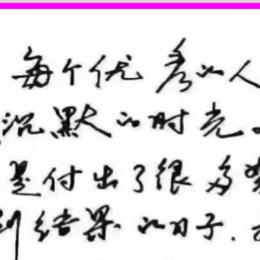 每个优秀的人
沉默的时光。
是付出了很多努
到结果的日子,